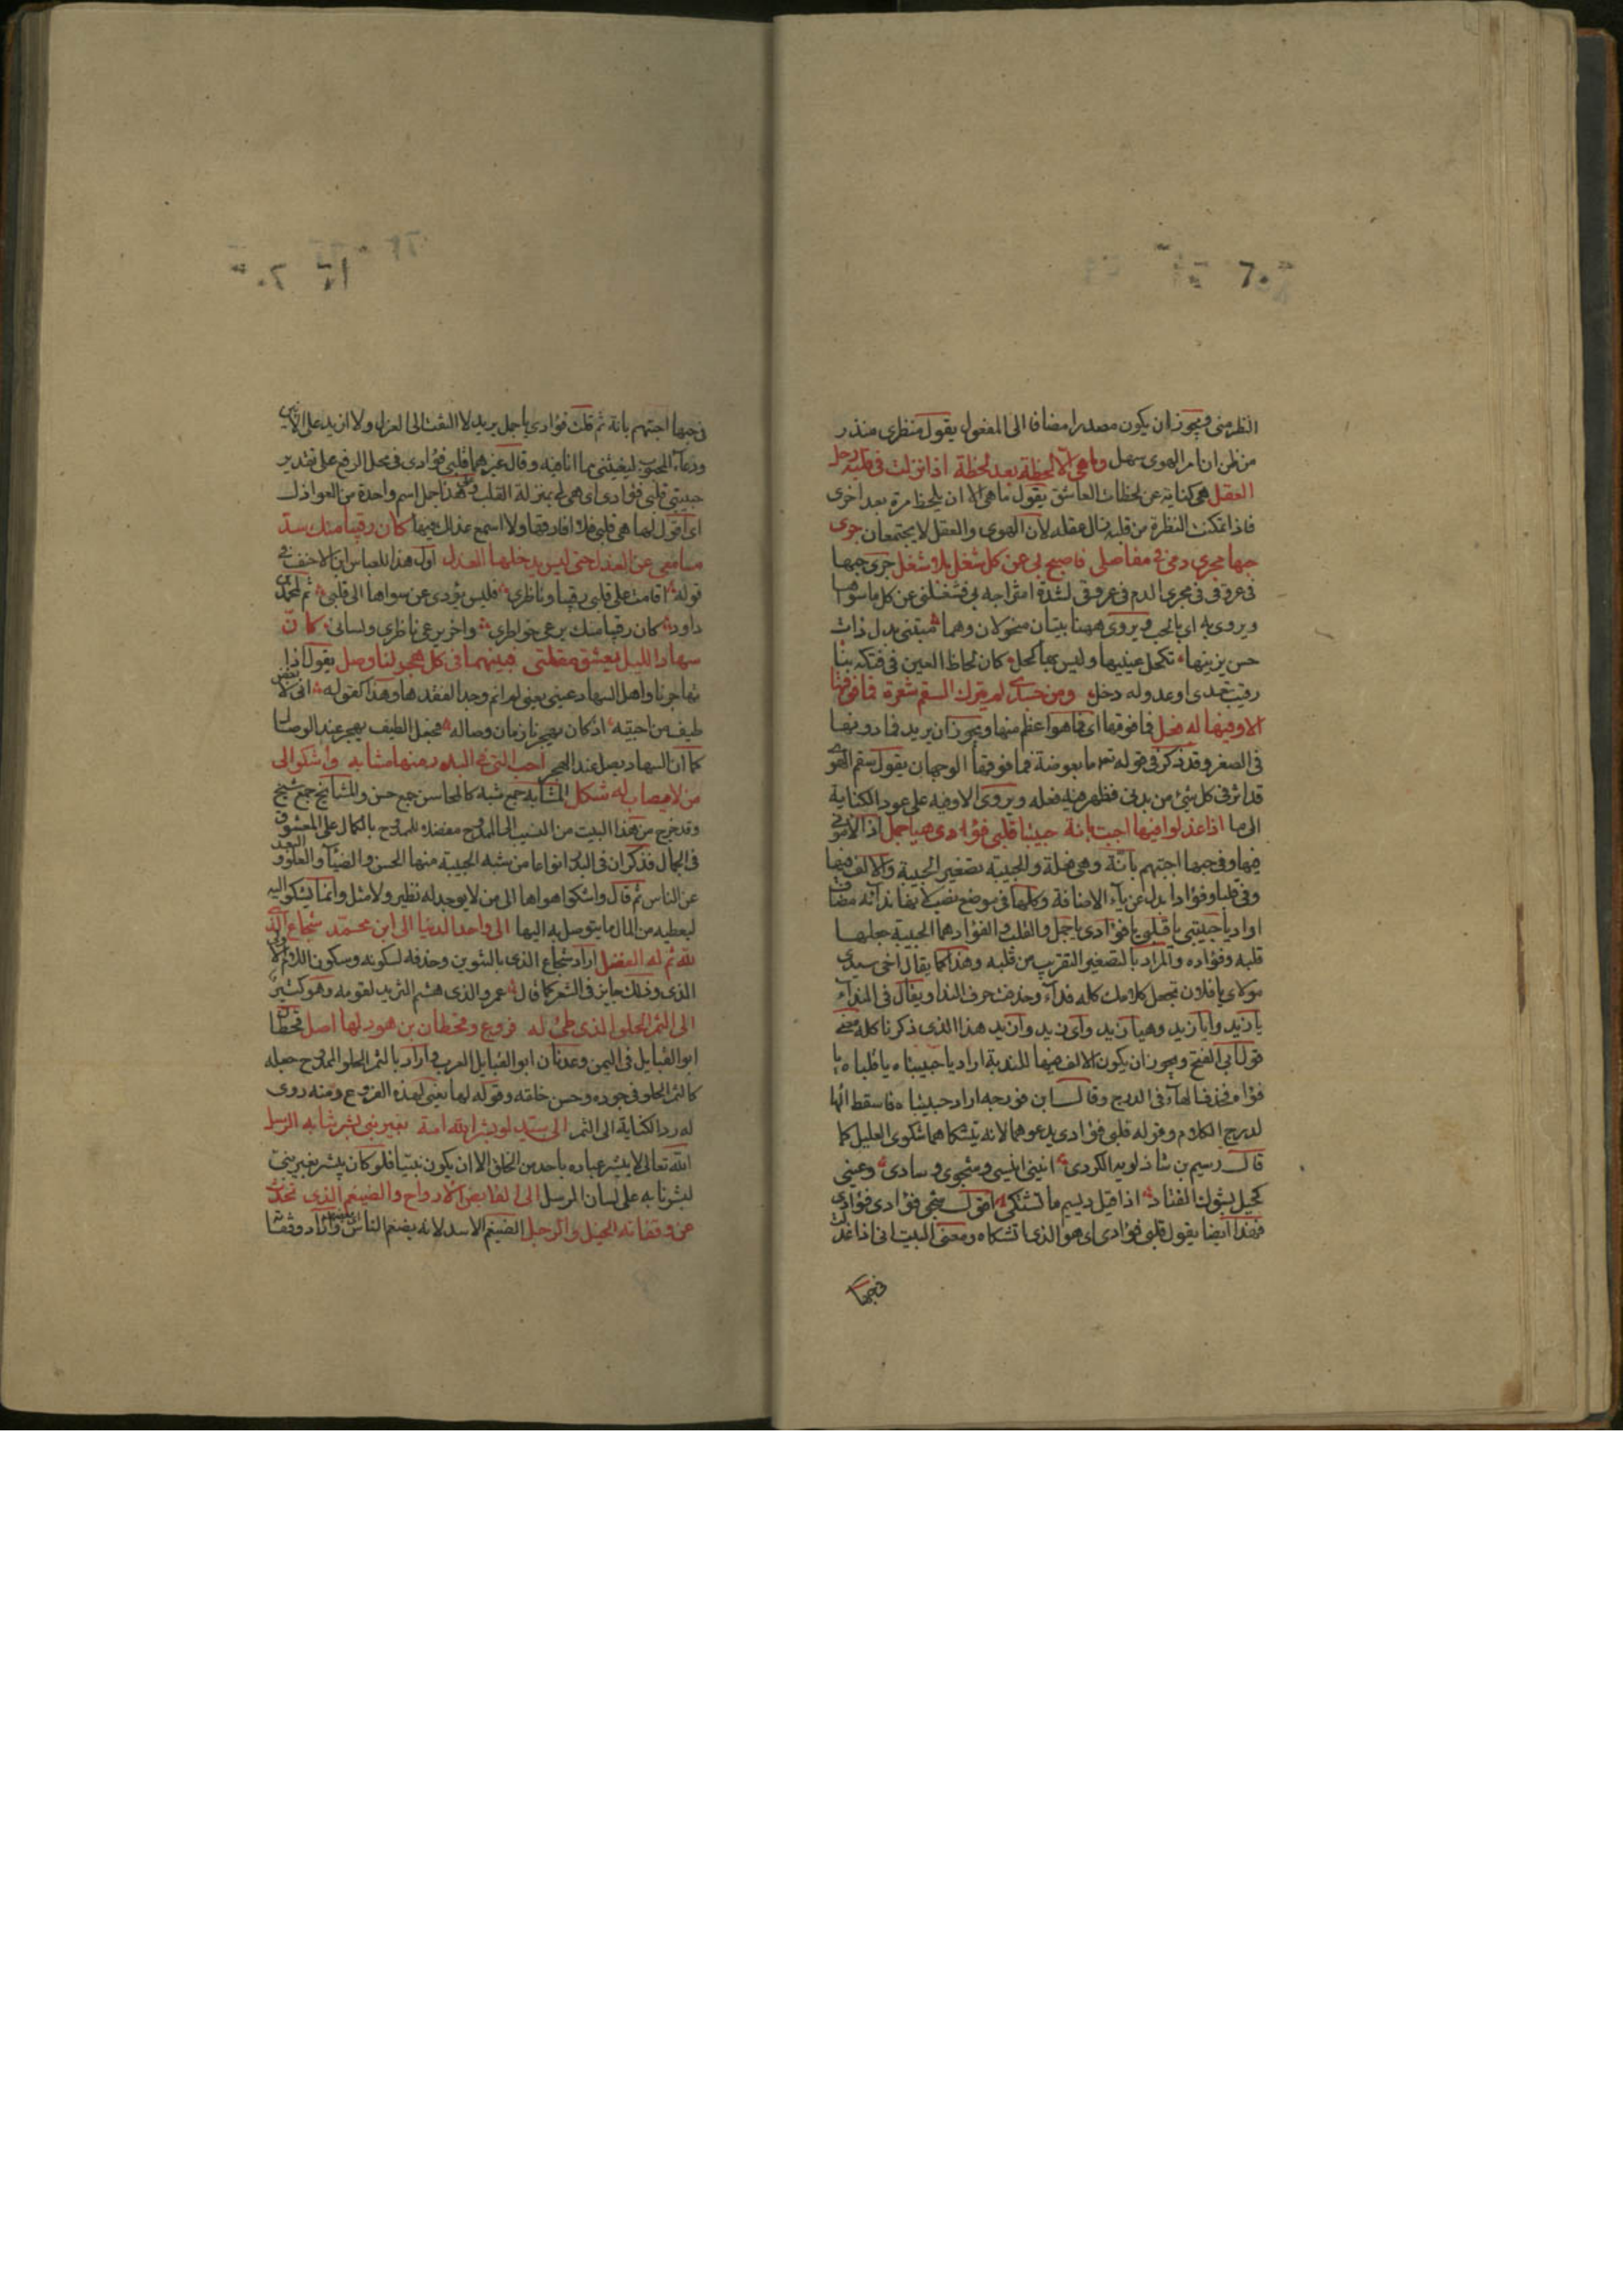 النظر منى ويجوز ان يكون مصدرا مضافا الى المفعول يقول منظرى منذر
من ظن ان امر الهوى سهل وما هى الا لحظة بعد لحظة اذا نزلت فى قلبه رحل
العقل هى كناية عن لحظات العاشق يقول ما هى الا ان يلحظ مرة بعد اخرى
فاذا تمكنت النظرة من قلبه زال عقله لان الهوى والعقل لا يجتمعان جرى
حبها مجرى دمى فى مفاصلى فاصبح لى عن كل شغل بها شغل جرى حبها
فى عروقى فى مجرى الدم فى عروقى لشدة امتزاجه بى فشغلنى عن كل ما سواها
ويروى به اى بالحب ويروى ههنا بيتان منحولان وهما سبتنى بدل ذات
حسن يزينها تكحل عينيها وليس بها كحل كان لحاظ العين فى فتكه بنا
رقيب تعدى او عدو له دخل ومن جسدى لم يترك السقم شعرة فما فوقها
الا وفيها له فعل فما فوقها اى فما هو اعظم منها ويجوز ان يريد فما دونها
فى الصغر وقد ذكر فى قوله تعـ ما بعوضة فما فوقها الوجهان يقول سقم الهوى
قد اثر فى كل شئ من بدنى فظهر فيه فعله ويروى الا وفيه على عود الكناية
الى ما اذا عذلوا فيها اجبت بانة حبيبتا قلبى فؤادى هيا جمل اذا لامونى
فيها وفى حبها اجبتهم بانة وهى فعلة والحبيبة تصغير الحبيبة والالف فيها
وفى قلبا وفؤادا بدل عن ياء الاضافة وكلها فى موضع نصب لانها نداء مضاف
اراد يا حبيبتى يا قلبى يا فؤادى يا جمل والقلب والفؤاد هما الحبيبة جعلها
قلبه وفؤاده والمراد بالتصغير التقريب من قلبه وهذا كما يقال اخى سيدى
مولاى يا فلان تجعل كلامك كله نداء وحذفت حرف الندا ويقال فى النداء
يا زيد وايا زيد وهيا زيد واى زيد وا زيد هذا الذى ذكرنا كله معنى
قول ابى الفتح ويجوز ان يكون الالف فيها للندبة اراد يا حبيبتاه يا قلباه يا
فؤاداه فحذف الهاء فى الدرج وقال ابن فورجه اراد حبيبتاه فاسقط الها
لدرج الكلام وقوله قلبى فؤادى يدعوهما لانه يتشكاهما شكوى العليل كما
قال ديسم بن شاذلويه الكردى انينى انيسى وشجوى وسادى وعينى
كحيل بشوك القتاد اذا قيل ديسم ما تشتكى اقول فؤادى فؤادى
فهذا ايضا يقول قلبى فؤادى اى هو الذى اتشكاه ومعنى البيت انى اذا عذلت
فى حبها
فى حبها اجبتهم بانة ثم قلت فؤادى يا جمل يريد لا التفت الى العزل ولا ازيد على الانين
ودعاء المحبوب ليغيثنى مما انا فيه وقال غيرهما قلبى فؤادى فى محل الرفع على تقدير
حبيبتى قلبى فؤادى اى هى لى بمنزلة القلب وعلى هذا جمل اسم واحدة من العواذل
اى اقول لها هى قلبى فلا افارقها ولا اسمع عذلك فيها كان رقيبا منك سد
مسامعى عن العذل حتى ليس يدخلها العذل اول هذا للعباس ابن الاحنف فى
قوله اقامت على قلبى رقيبا وناظرى فليس يؤدى عن سواها الى قلبى ثم لمحمد بن
داود كان رقيبا منك يرعى خواطرى واخر يرعى ناظرى ولسانى كان
سهاد الليل يعشق مقلتى فبينهما فى كل هجر لنا وصل يقول اذا
تهاجرنا واصل السهاد عينى يعنى لم انم وجدا لفقدها وهذا كقوله انى لابغض
طيف من احببته اذ كان يهجرنا زمان وصاله فجعل الطيف يهجر عند الوصال
كما ان السهاد يصل عند الهجر احب التى فى البدر منها مشابه واشكو الى
من لا يصاب له شكل المشابه جمع شبه كالمحاسن جمع حسن والمشايخ جمع شيخ
وقد خرج من هذا البيت من النسيب الى المدح مفضلا للممدوح بالكمال على المعشوق
فى الجمال فذكر ان فى البدر انواعا من شبه الحبيبة منها الحسن والضياء والعلو والبعد
عن الناس ثم قال واشكو اهواها الى من لا يوجد له نظير ولا مثل وانما يشكو اليه
ليعطيه من المال ما يتوسل به اليها الى واحد الدنيا الى ابن محمد شجاع الذى
لله ثم له الفضل اراد شجاع الذى بالتنوين وحذفه لسكونه وسكون اللام الاولى
الذى وذلك جايز فى الشعر كما قال عمرو الذى هشم الثريد لقومه وهو كثير
الى الثمر الحلو الذى طئ له فروع وقحطان بن هود لها اصل قحطان
ابو القبايل فى اليمن وعدنان ابو القبايل العرب واراد بالثمر الحلو الممدوح جعله
كالثمر الحلو فى جوده وحسن خلقه وقوله لها يعنى لهذه الفروع ومنه روى
له رد الكناية الى الثمر الى سيد لو بشر الله امة بغير نبى بشرتنا به الرسل
الله تعالى لا يبشر عباده باحد من الخلق الا ان يكون نبيا فلو كان يبشر بغير نبى
لبشرنا به على لسان المرسل الى القابض الارواح والضيغم الذى تحدث
عن وقفاته الخيل والرجل الضيغم الاسد لانه يضغم الناس واراد وقفاته